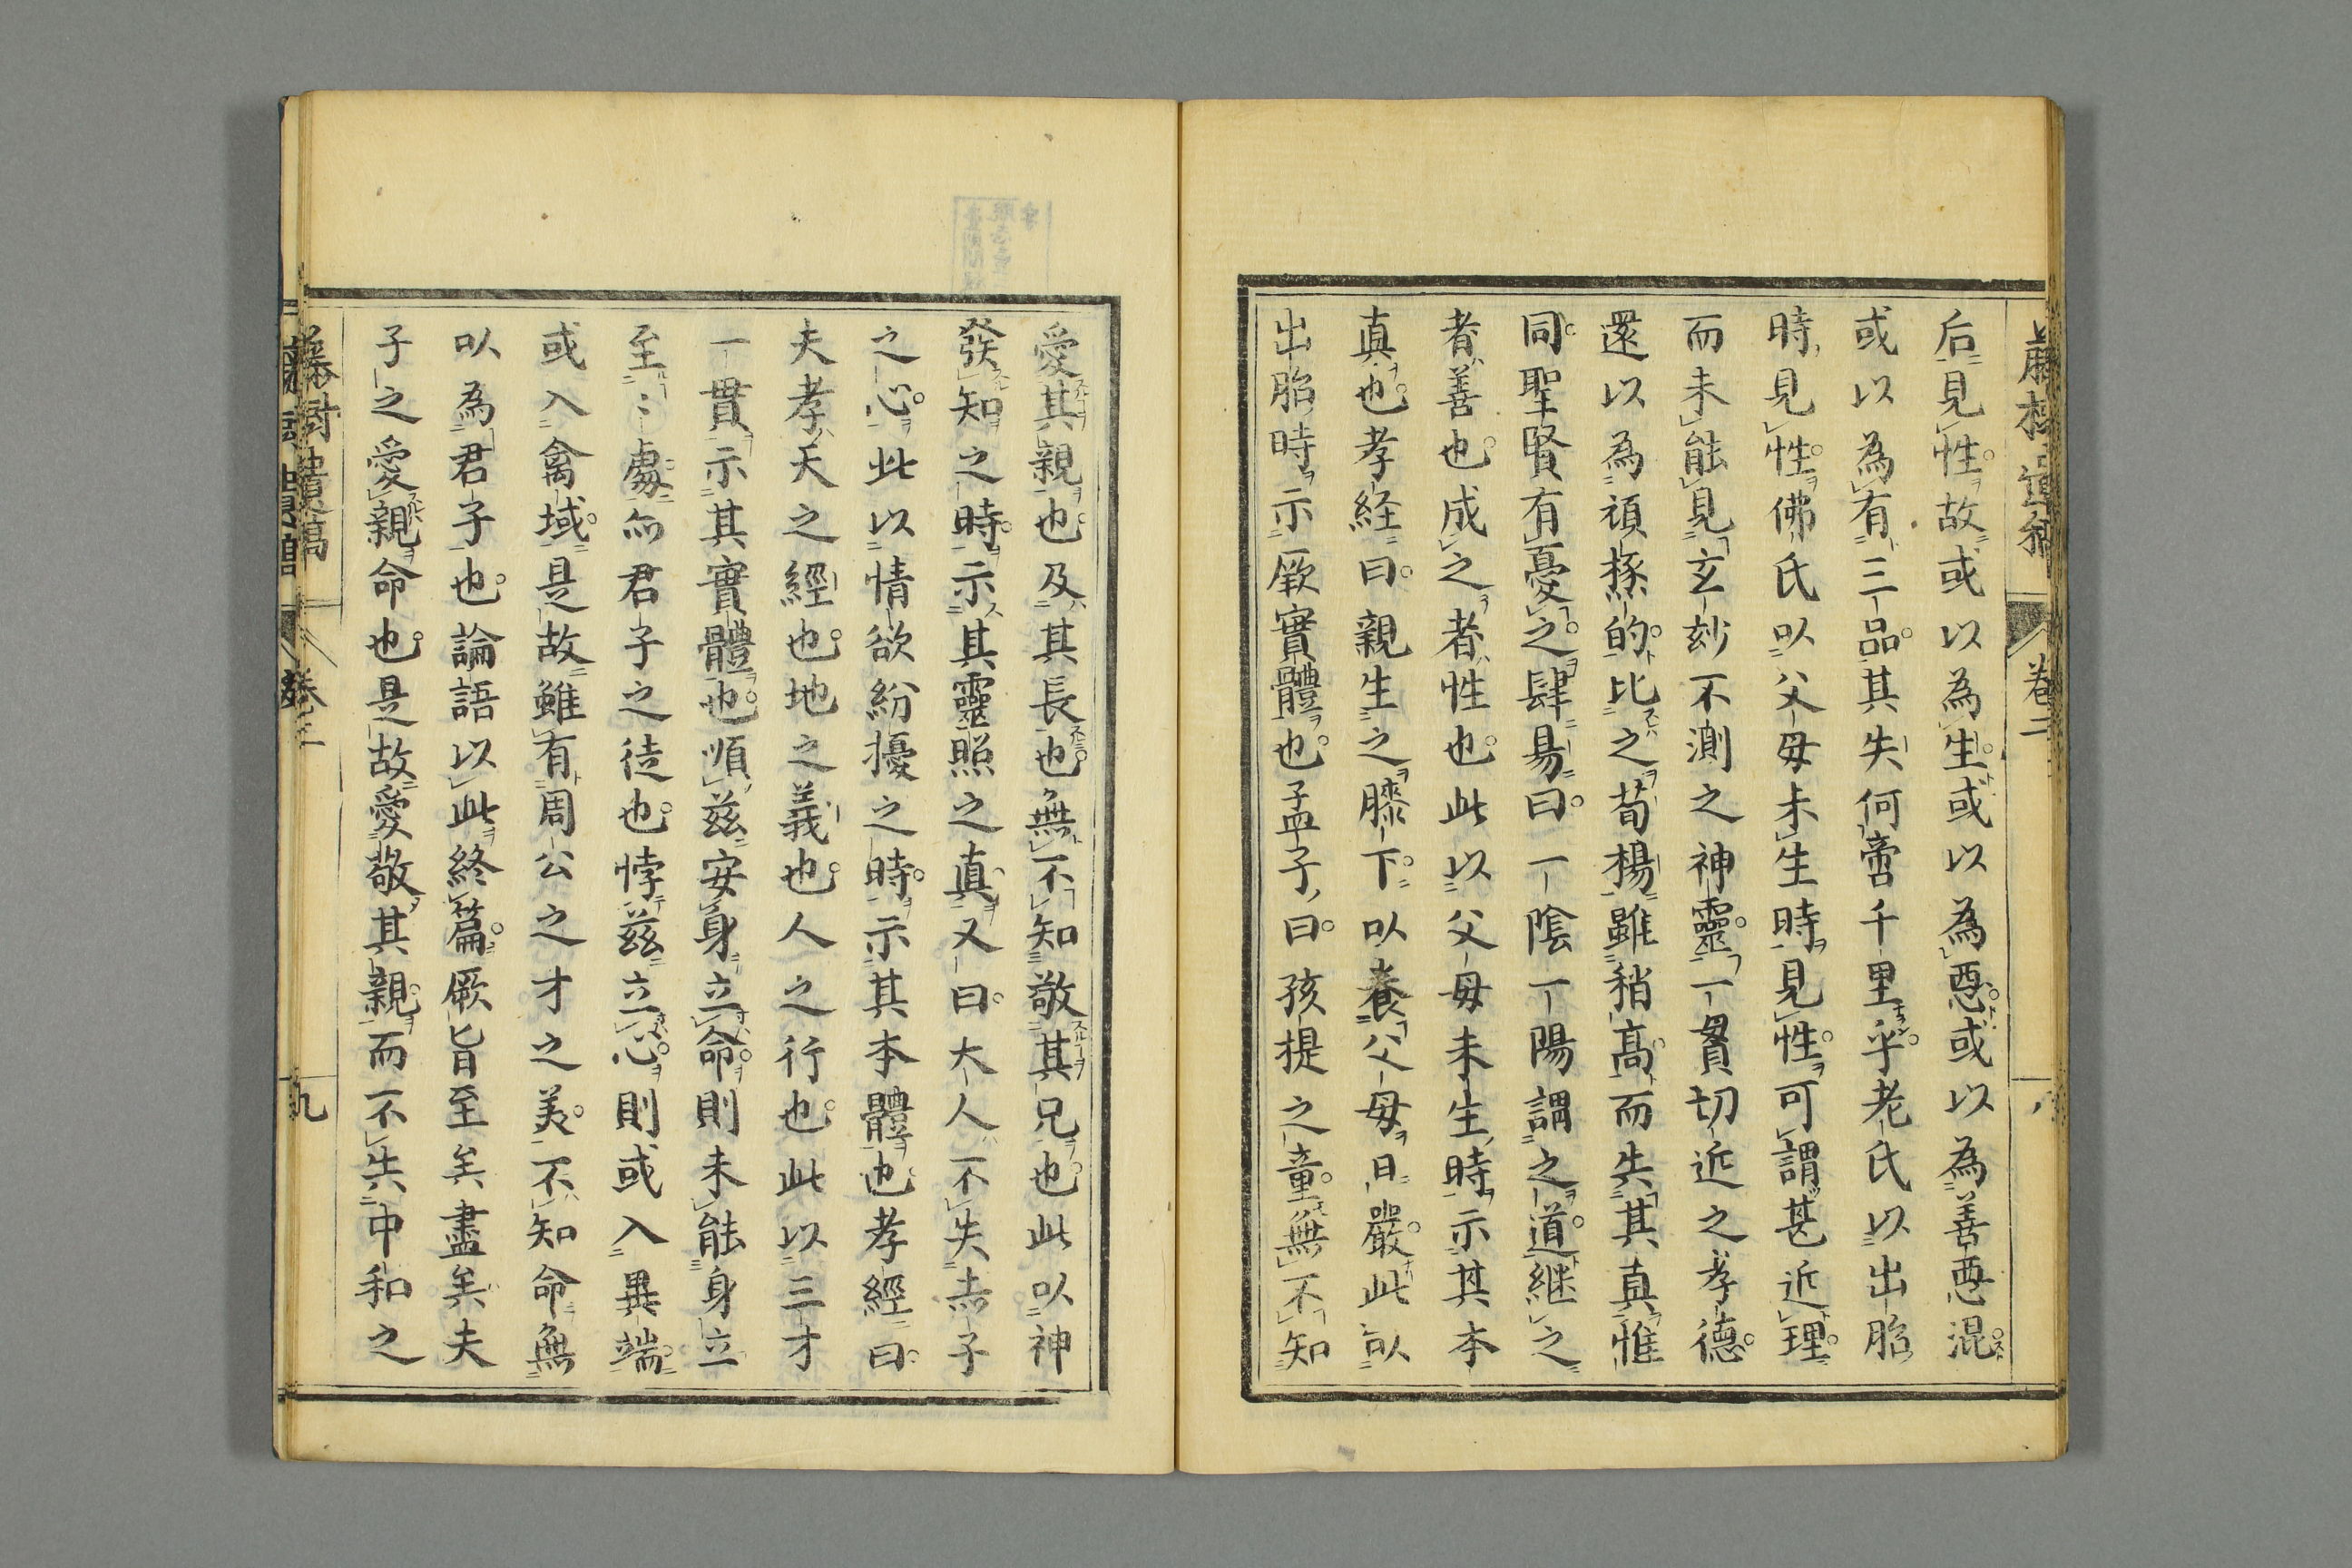 后見性故或以為生或以為惡或以為善惡混
或以為有三品其失何啻千里乎老氏以出胎
時見性佛氏以父母未生時見性可謂甚近理
而未能見玄玅不測之神靈一貫切近之孝德
還以為頑㨽的比之荀楊雖稍高而失其真惟
同聖賢有憂之肆昜曰一陰一陽謂之道継之
者善也成之者性也此以父母未生時示其本
真也孝経曰親生之膝下以養父母日嚴此以
出胎時示厥實體也孟子曰孩提之童無不知
愛其親也及其長也無不知敬其兄也此以神
發知之時示其靈照之真又曰大人不失赤子
之心此以情欲紛擾之時示其本體也孝經曰
夫孝天之經也地之義也人之行也此以三才
一貫示其實體也順兹安身立命則未能身立
至〻處而君子之徒也悖兹立心則或入異端
或入禽域是故雖有周公之才之美不知命無
以為君子也論語以此終篇厥旨至矣盡矣夫
子之愛親命也是故愛敬其親而不失中和之
藤樹遺稿
卷二
九